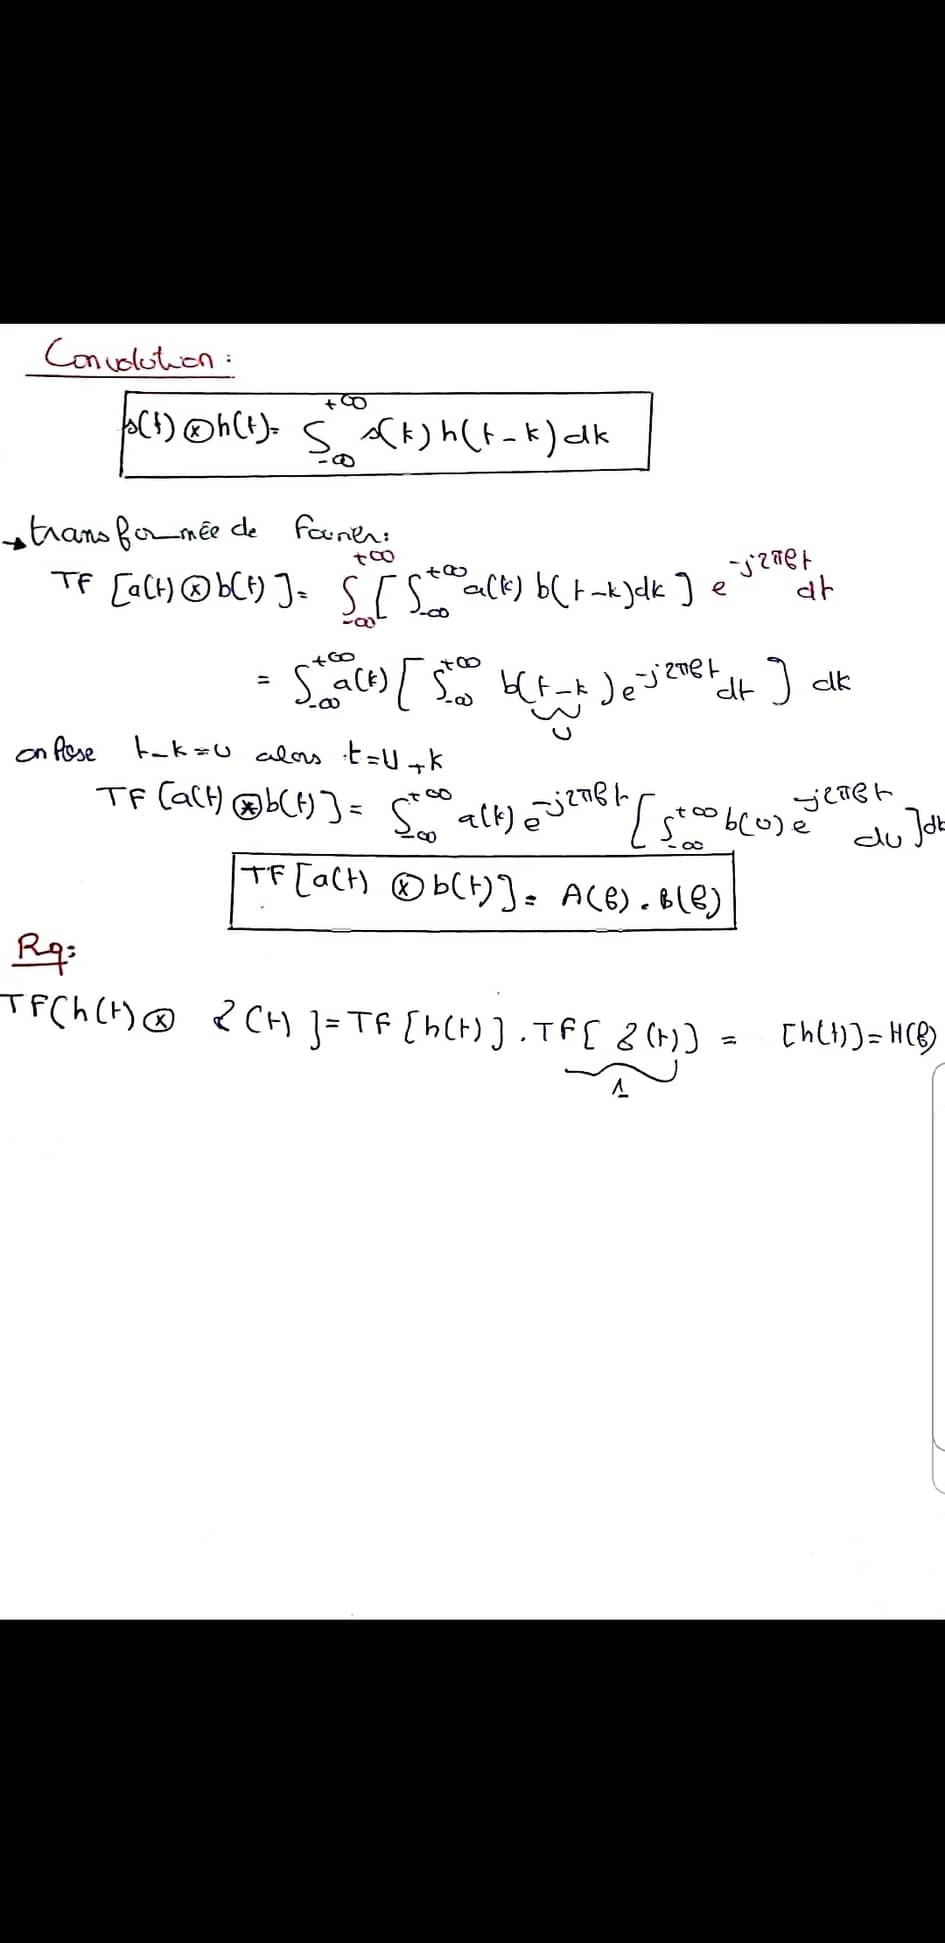 Convolution :
s(t) ⊗ h(t) = ∫_{-∞}^{+∞} s(k) h(t-k) dk
→ transformée de Fourier :
TF [a(t) ⊗ b(t)] = ∫_{-∞}^{+∞} [ ∫_{-∞}^{+∞} a(k) b(t-k) dk ] e^{-j2πft} dt
= ∫_{-∞}^{+∞} a(k) [ ∫_{-∞}^{+∞} b(t-k) e^{-j2πft} dt ] dk
U
on pose t-k = U alors t = U+k
TF [a(t) ⊗ b(t)] = ∫_{-∞}^{+∞} a(k) e^{-j2πft} [ ∫_{-∞}^{+∞} b(U) e^{-j2πft} dU ] dk
TF [a(t) ⊗ b(t)] = A(f) . B(f)
Rq :
TF [h(t) ⊗ δ(t)] = TF [h(t)] . TF [δ(t)] = [h(t)] = H(f)
1